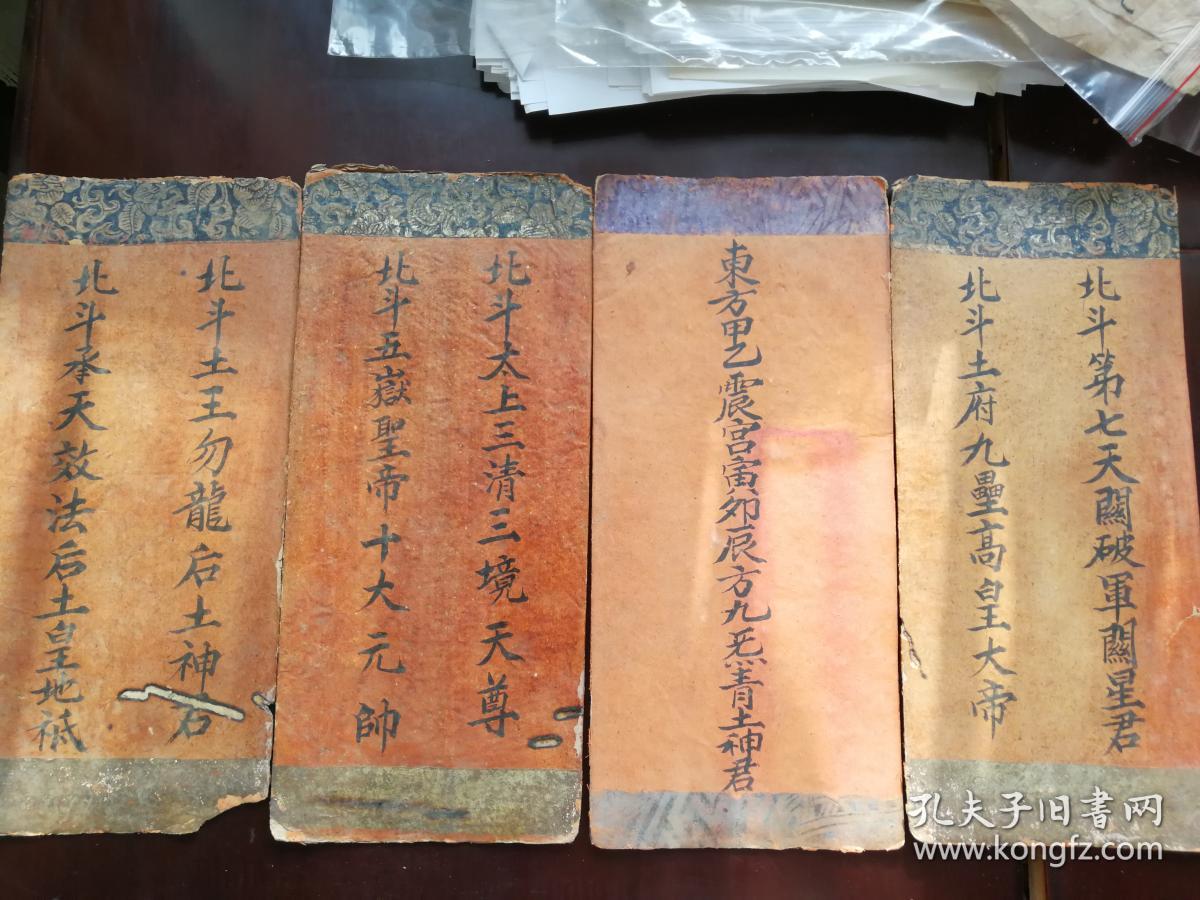 北斗第七天關破軍關星君
北斗土府九壘高皇大帝
東方甲乙震宮寅卯辰方九炁青土神君
北斗太上三清三境天尊
北斗五嶽聖帝十大元帥
北斗土王勿龍后土神君
北斗承天效法后土皇地祇
孔夫子旧書网
www.kongfz.com